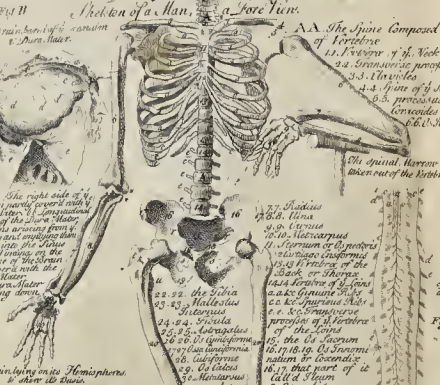 Fig II
Skeleton of a Man, a Fore View.
brain, bared of yͤ cranium
& Dura Mater.
A A. The Spine Composed
of Vertebræ
yͤ Neck
2.2. Transverse
3.3. Clavicles
4.4. Spine of yͤ
5.5. processus
Coracoides
6.6.
The spinal Marrow
taken out of the Vertebræ
The right side of yͤ
partly cover'd with yͤ
Longitudinal
of the Dura Mater
arising from yͤ
and emptying them
into the Sinus
ending on the
of the Brain
er'd with the
Mater.
ura Mater
ng down.
7.7. Radius
8.8. Ulna
9.9. Carpus
10.10. Metacarpus
11. Sternum or Os pectoris
12. Cartilago Ensiformis
13.13. Vertebræ of the
Back or Thorax
14.14. Vertebræ of yͤ Loins
a.a. &c Genuine Ribs
e.e. &c Spurious Ribs
e.e. &c. Transverse
processes of yͤ Vertebræ
of the Loins
15. the Os Sacrum
16.17.18.19. Os Innomi
natum or Coxendix
16.17. that part of it
Call'd Ileum
22.22. the Tibia
23.23. Malleolus
Internus
24.24. Fibula
25.25. Astragalus
26.26. Os Cymbiforme
27.27 Ossa Cuneiformia
28. Cubiforme
29. Os Calcis
30. Metatarsus
lying on its Hemispheres,
to shew its Basis.